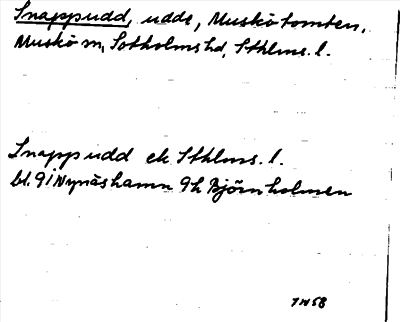 Snappudd, udde, Muskö tomten,
Muskö sn, Sotholms hd, Sthlms. l.
Snappudd ek Sthlms. l.
bl. 9i Nynäshamn 9h Björnholmen
7N58